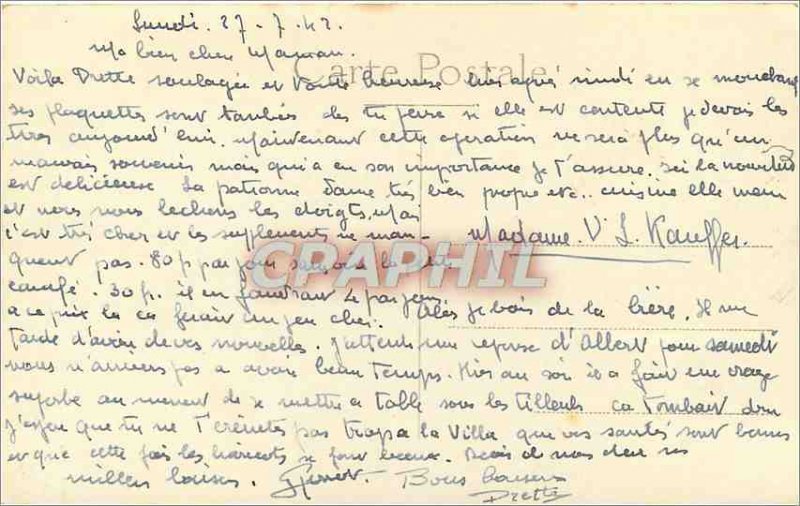 Lundi. 27-7.42.
Ma bien chère Maman.
Carte Postale
Voila Drette soulagée et toute heureuse hier après midi en se mouchant
ses plaquettes sont tombées tu penses si elle est contente je devais les
tirer aujourd'hui. Maintenant cette operation ne sera plus qu'un
mauvais souvenir mais qui a eu son importance je t'assure. Ici la nourriture
est délicieuse la patronne dame très bien propre etc.. cuisine elle meme
et nous nous lechons les doigts. Mais
c'est très cher et les supléments ne man-
quent pas. 80 f par jour sans
Madame. V L Kauffer.
CPAPHIL
30 f. il en faudrait 4 par jour
a ce prix la ca ferait un peu cher. Alors je bois de la bière. Il me
tarde d'avoir de vos nouvelles. J'attends une reponse d'Albert pour samedi
nous n'arrivons pas a avoir beau temps. Hier au soir il a fait un orage
superbe au moment de se mettre a table sous les tilleuls ca tombait dru
J'espère que tu ne t'ereintes pas trop a la Villa, que vos santés sont bonnes
et que cette fois les haricots se font beaux. Recois de nos deux
milles baisers. Bons baisers
Drette